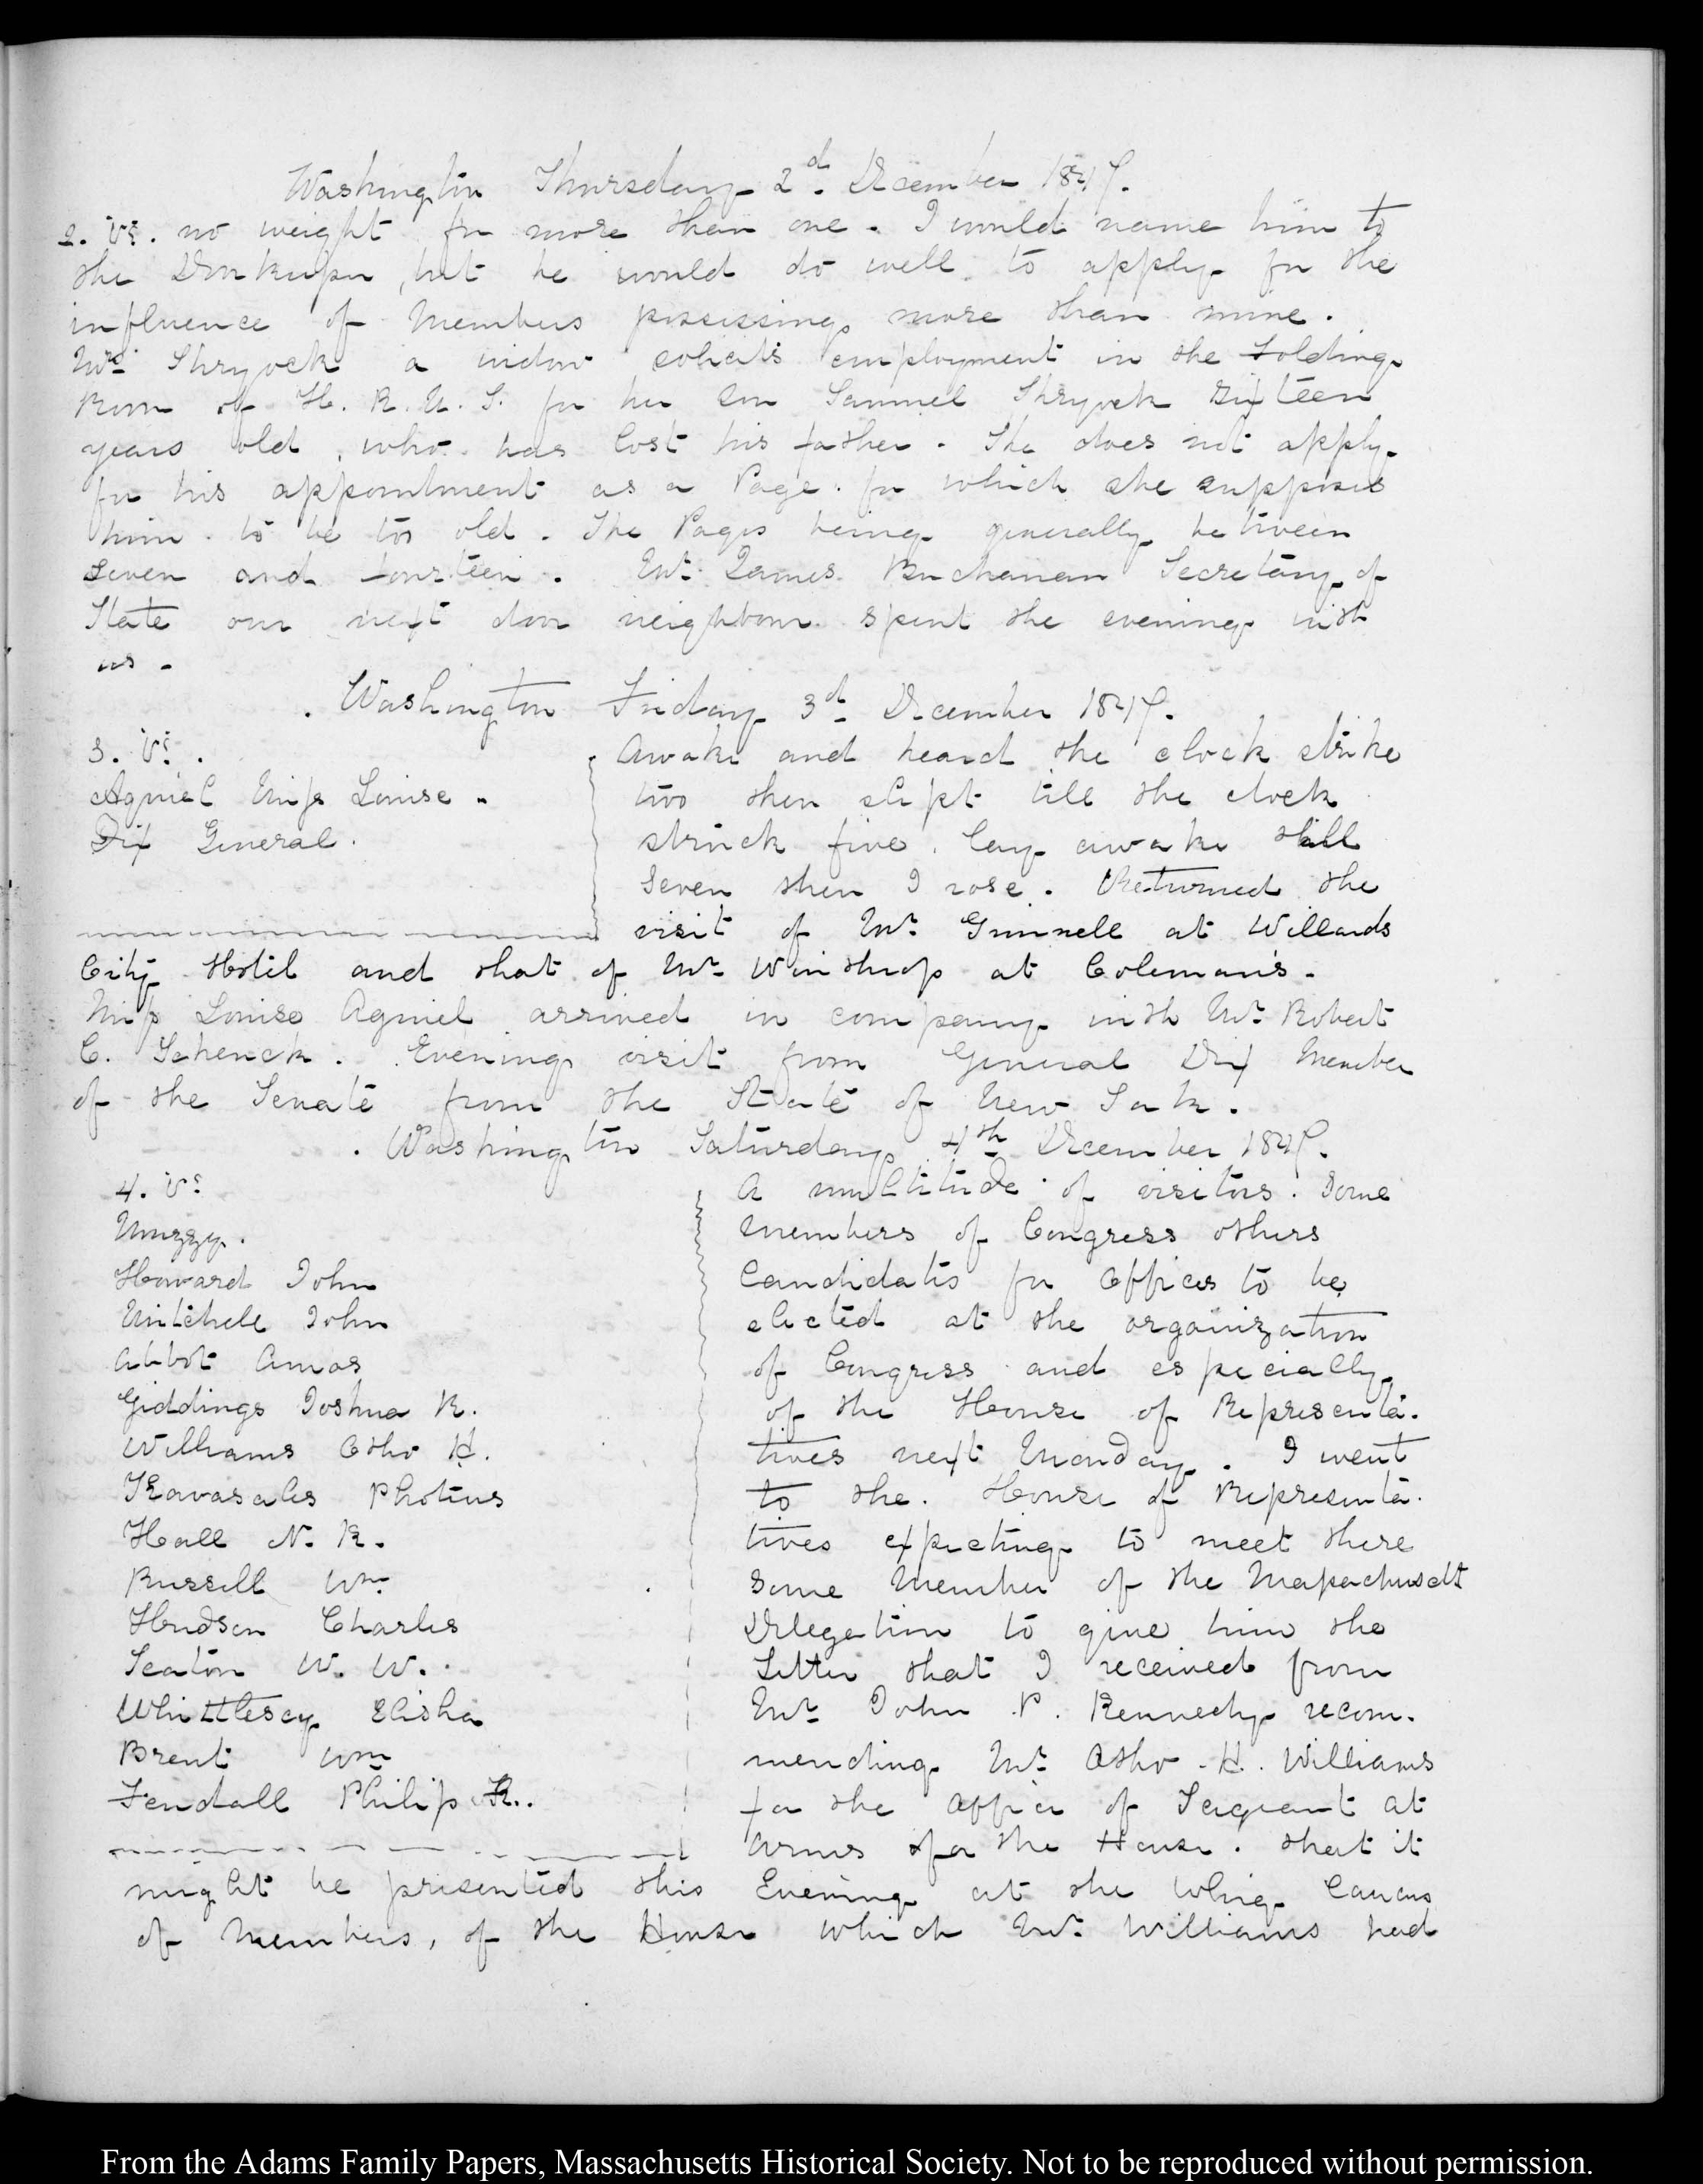 Washington Thursday 2d. December 1847.
2. V:. no weight for more than one. I would name him to
the Doorkeeper, but he would do well to apply for the
influence of Members possessing more than mine.
Mrs Shryock a widow solicits employment in the Folding
Room of H. R. U. S. for her Son Samuel Shryock sixteen
years old, who has lost his father. She does not apply
for his appointment as a Page. for which she supposes
him to be too old. The Pages being generally between
Seven and fourteen. Mr. James Buchanan Secretary of
State our next door neighbour spent the evening with
us.
Washington Friday 3d. December 1847.
3. V:.
Agniel Miss Louise.
Dix General.
Awake and heard the clock strike
two then slept till the clock
struck five. lay awake till
Seven then I rose. Returned the
visit of Mr. Grinnell at Willards
City Hotel and that of Mr. Winthrop at Coleman's.
Miss Louise Agniel arrived in company with Mr. Robert
C. Schenck. Evening visit from General Dix Member
of the Senate from the State of New York.
Washington Saturday 4th December 1847.
4. V:
Muzzy.
Howard John
Mitchell John
Abbot Amos
Giddings Joshua R.
Williams Otho H.
Kavasales Photius
Hall N. K.
Russell Wm
Hudson Charles
Seaton W. W.
Whittlesey Elisha
Brent Wm
Fendall Philip R.
A multitude of visitors. Some
Members of Congress others
Candidates for Offices to be
elected at the organization
of Congress and especially
of the House of Representa-
tives next Monday. I went
to the House of Representa-
tives expecting to meet there
Some Member of the Massachusetts
Delegation to give him the
Letter that I received from
Mr. John P. Kennedy recom-
mending Mr. Otho H. Williams
for the Office of Sergeant at
Arms of the House. that it
might be presented this Evening at the Whig Caucus
of Members, of the House which Mr. Williams had
From the Adams Family Papers, Massachusetts Historical Society. Not to be reproduced without permission.